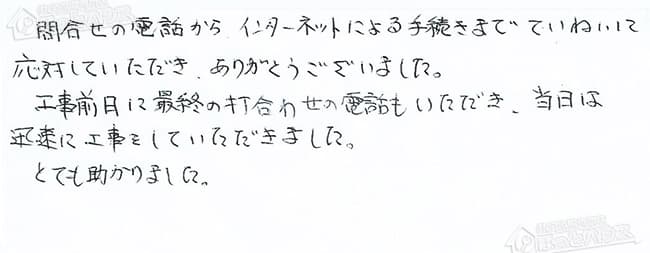 問合せの電話から、インターネットによる手続きまで ていねいに
応対していただき、ありがとうございました。
工事前日に最終の打合わせの電話もいただき、当日は
迅速に工事をしていただきました。
とても助かりました。